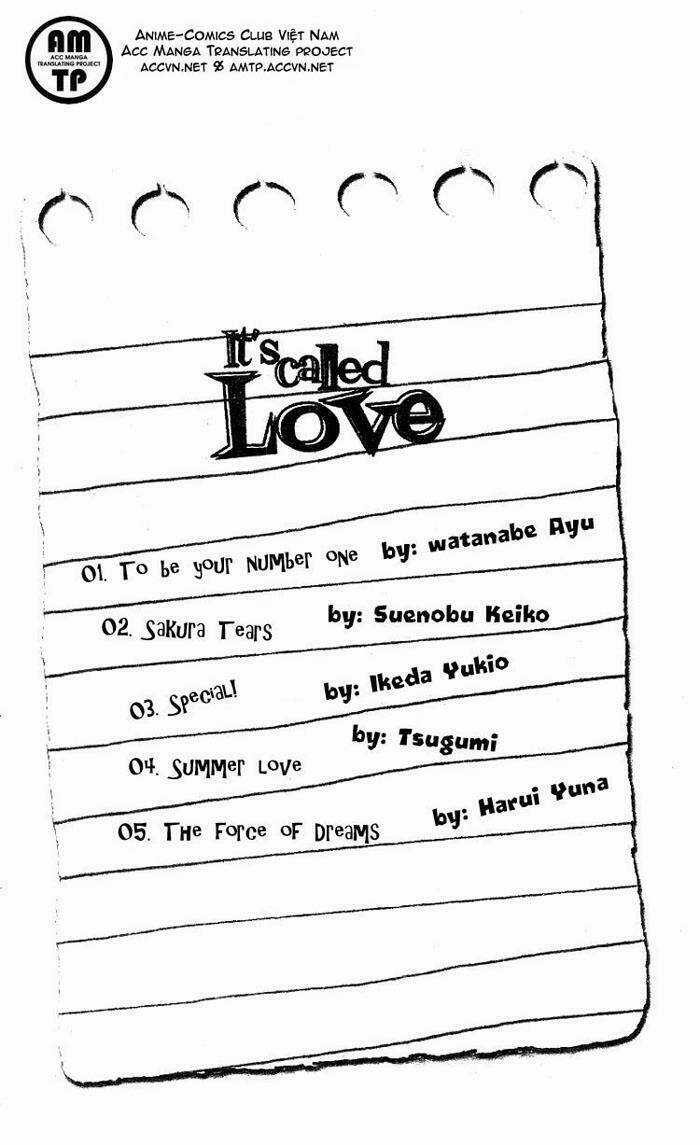 AM
ACC MANGA
TRANSLATING PROJECT
TP
Anime-Comics Club Việt Nam
Acc Manga Translating project
accvn.net & amtp.accvn.net
It's
called
Love
01. To be your Number one by: watanabe Ayu
02. Sakura Tears by: Suenobu Keiko
03. Special! by: Ikeda Yukio
04. Summer Love by: Tsugumi
05. The Force of Dreams by: Harui Yuna